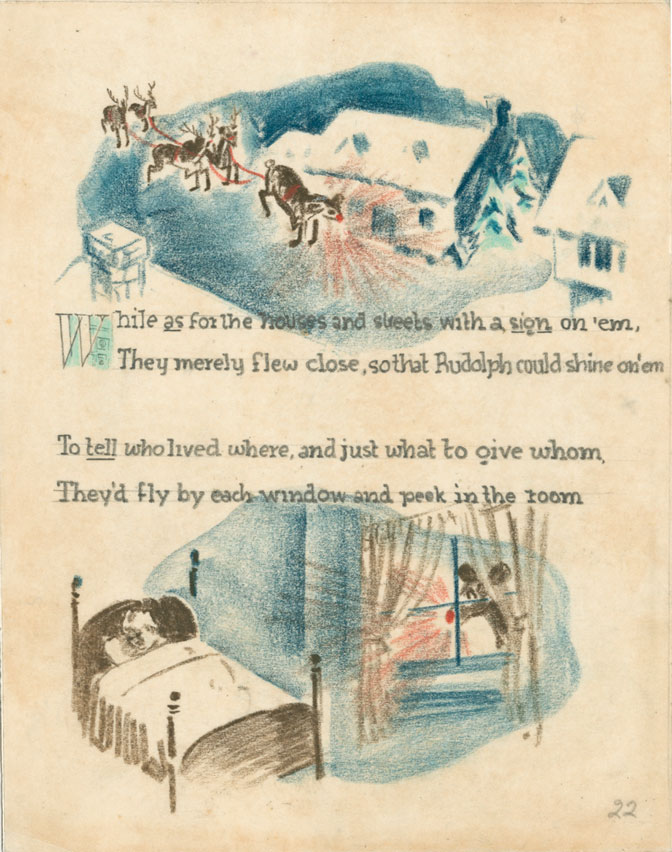 While as for the houses and streets with a sign on 'em,
They merely flew close, so that Rudolph could shine on 'em
To tell who lived where, and just what to give whom,
They'd fly by each window and peek in the room
22